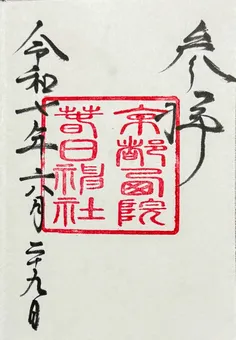 参拝
京都西院
春日神社
令和七年六月二十九日